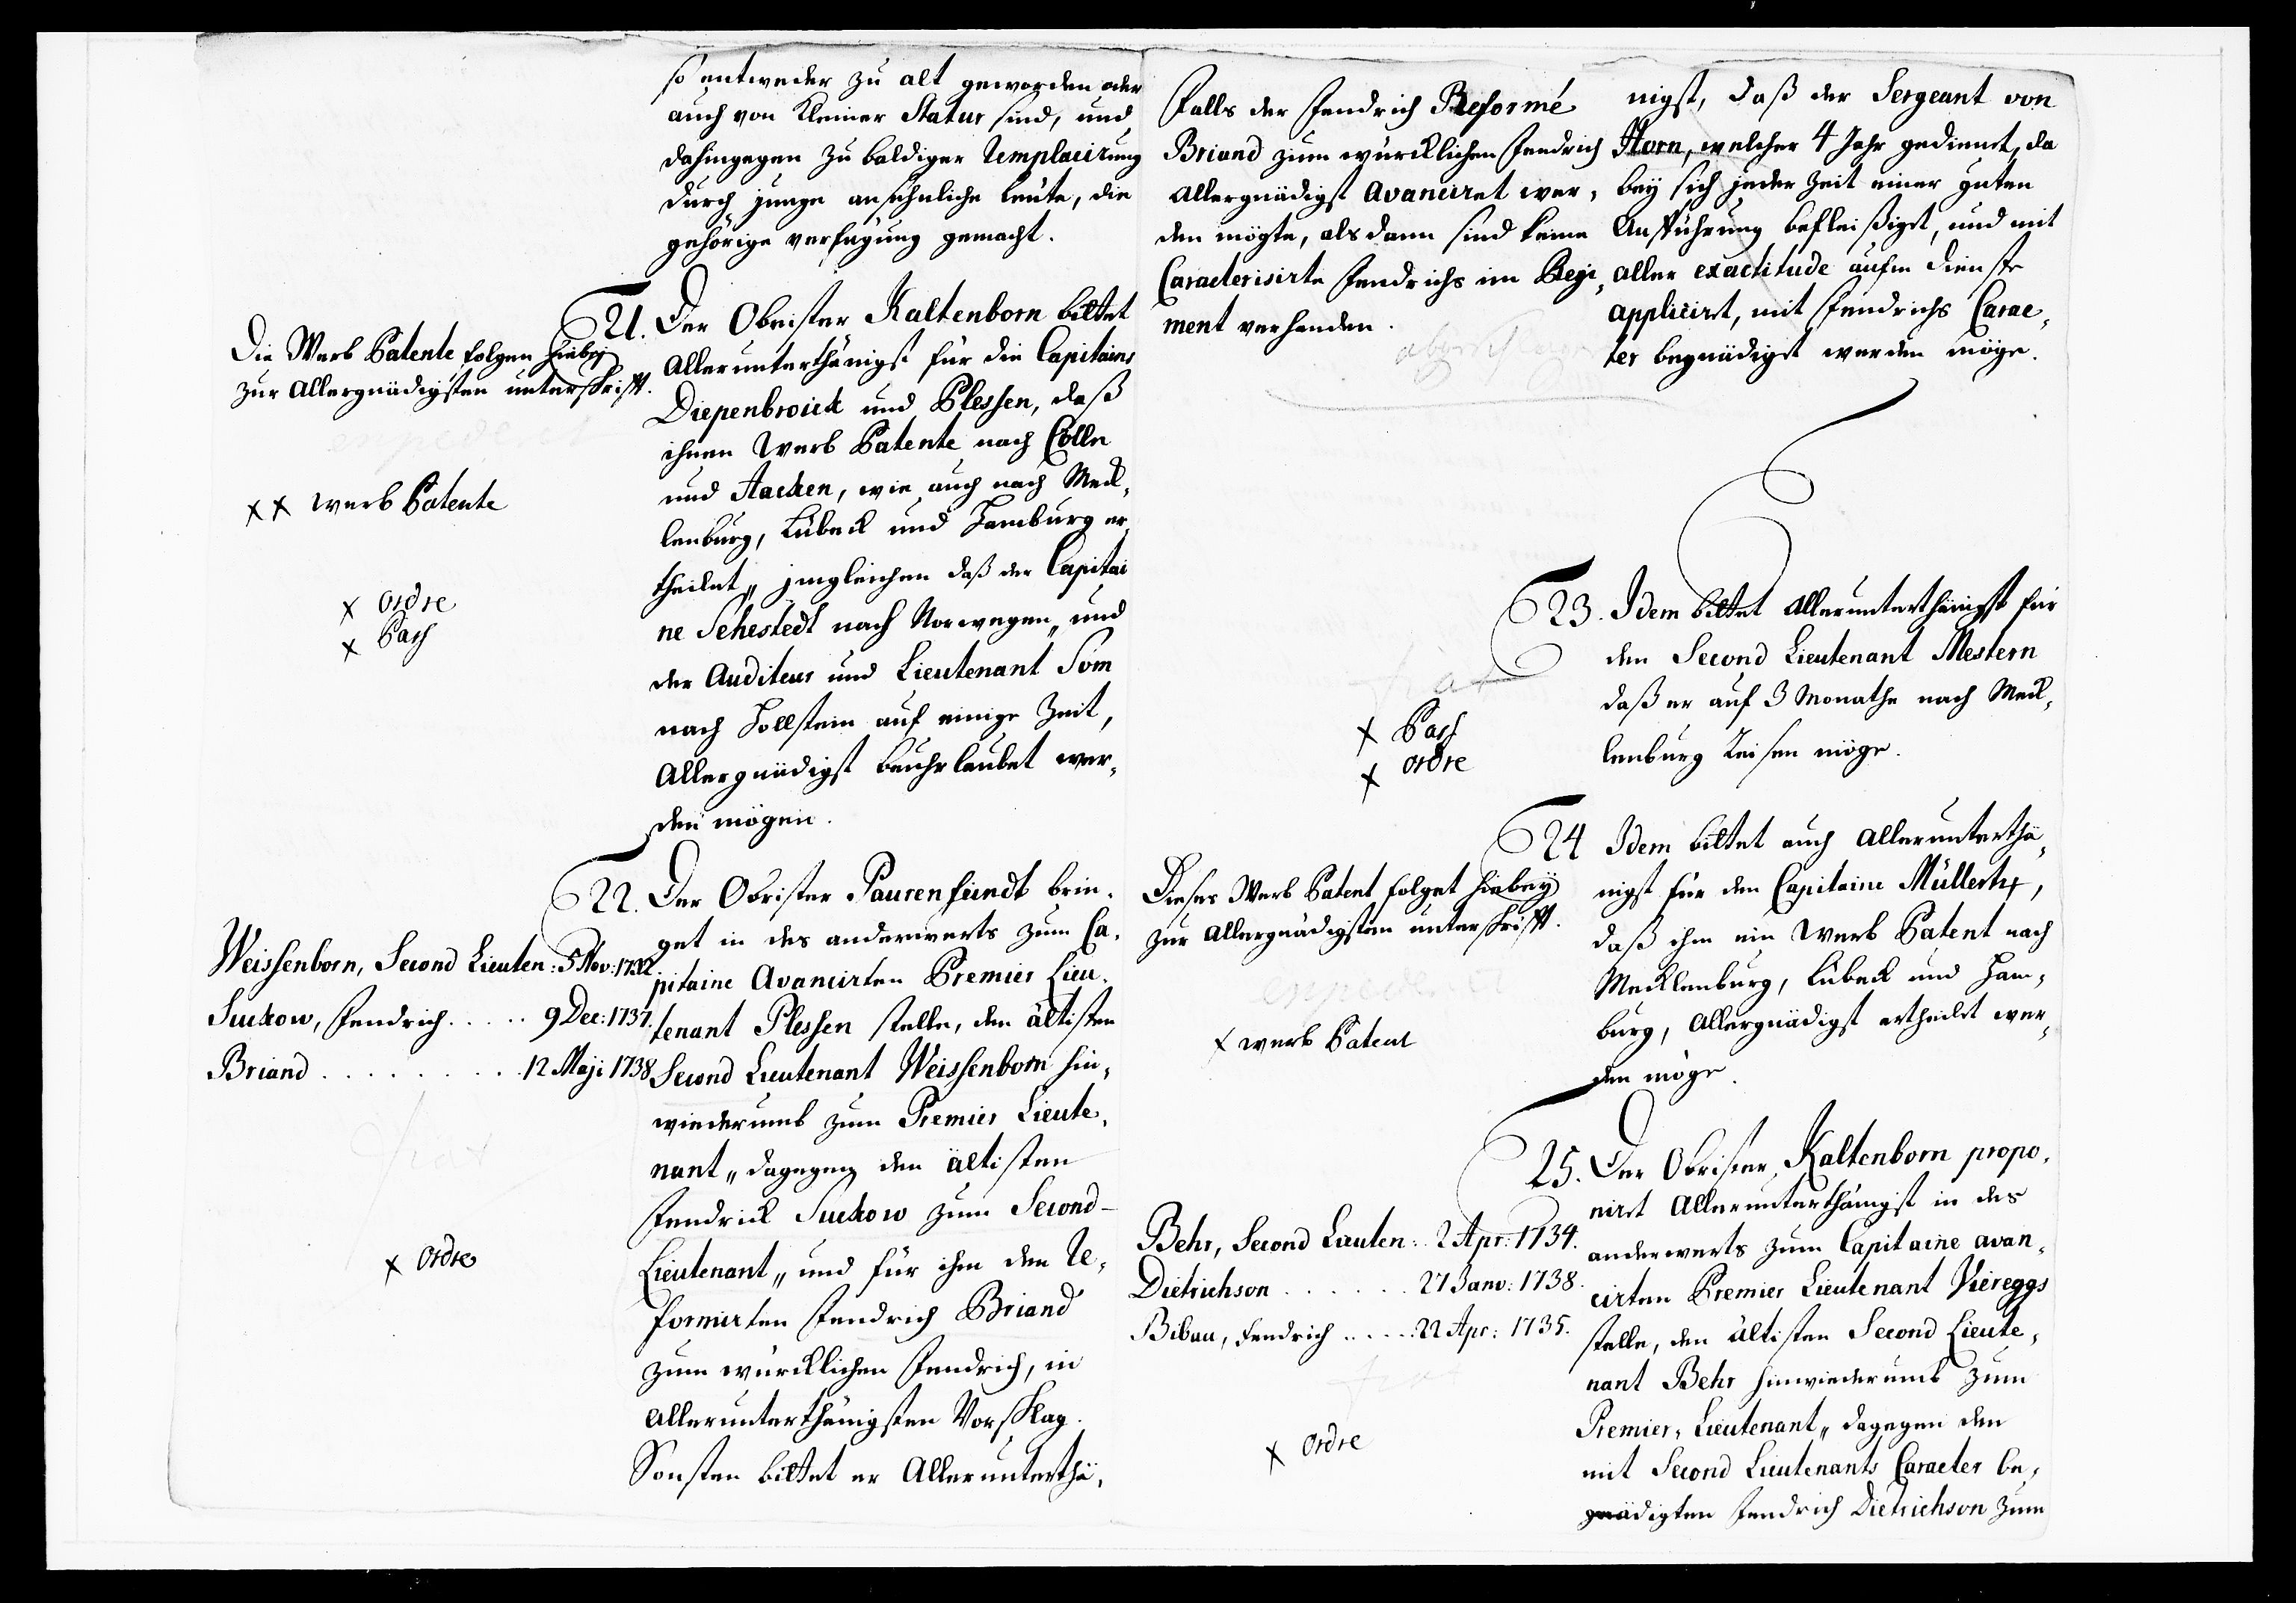 so entweder zu alt geworden oder
auch von kleiner Statur sind, und
dahingegen zu baldiger Remplacirung
durch junge ansehnliche Leute, die
gehörige verfügung gemacht.
Die Werb Patente folgen hiebej
zur Allergnädigsten unterschrifft.
++ Werb Patente
+ Ordre
+ Pass
21. Der Obrister Kaltenborn bittet
Allerunterthänigst für die Capitains
Diepenbroick und Plessen, daß
ihnen Werb Patente nach Cölln
und Aacken, wie auch nach Meck,
lenburg, Lübeck und Hamburg er,
theilet,, imgleichen daß der Capitai
ne Sehestedt nach Norwegen,, und
der Auditeur und Lieutenant Som
nach Hollstein auf einige Zeit,
Allergnädigst beuhrlaubet wer,
den mögen.
Weissenborn, Second Lieuten: 5 Nov: 1732.
Suckow, Fendrich . . . . . 9 Dec: 1737.
Briand . . . . . . . . . 12 Maji 1738
fiat
+ Ordre
22. Der Obrister Paurenfeindt brin,
get in des anderwerts zum Ca,
pitaine Avancirten Premier Lieu,
tenant Plessen stelle, den ältisten
Second Lieutenant Weissenborn hin,
wiederumb zum Premier Lieute,
nant,, dagegen den ältisten
Fendrick Suckow zum Second-
Lieutenant,, und für ihm den Re,
formirten Fendrich Briand
zum würcklichen Fendrich, in
Allerunterthänigsten Vorschlag.
Sonsten bittet er Allerunterthä,
Falls der Fendrich Reformé
Briand zum würcklichen Fendrich
Allergnädigst Avanciret wer,
den mögte, als dann sind keine
Caracterisirte Fendrichs im Regi,
ment verhanden.
nigst, daß der Sergeant von
Horn, welcher 4 Jahr gedienet, da
bey sich jeder Zeit einer guten
Aufführung befleißiget, und mit
aller exactitude aufm dienste
appliciret, mit Fendrichs Carac,
ter begnädiget werden möge.
fiat
+ Pass
+ Ordre
23. Idem bittet Allerunterthänigst für
den Second Lieutenant Mestern
daß er auf 3 Monathe nach Meck,
lenburg Reisen möge.
Dieses Werb Patent folget hiebey
zur Allergnädigsten unterschrifft.
+ Werb Patent
24 Idem bittet auch Allerunterthä,
nigst für den Capitaine Müllertz,
daß ihm ein Werb Patent nach
Mecklenburg, Lübeck und Ham,
burg, Allergnädigst ertheilet wer,
den möge.
Behr, Second Lieuten: 2 Apr: 1734.
Dietrichson . . . . . . 27 Janv: 1738.
Bibau, Fendrich . . . . . 22 Apr: 1735.
+ Ordre
25. Der Obrister Kaltenborn propo,
niret Allerunterthänigst in des
anderwerts zum Capitaine avan,
cirten Premier Lieutenant Viereggs
stelle, den ältisten Second Lieute,
nant Behr hinwiederumb zum
Premier, Lieutenant,, dagegen den
mit Second Lieutenants Caracter be,
gnädigten Fendrich Dietrichson zum